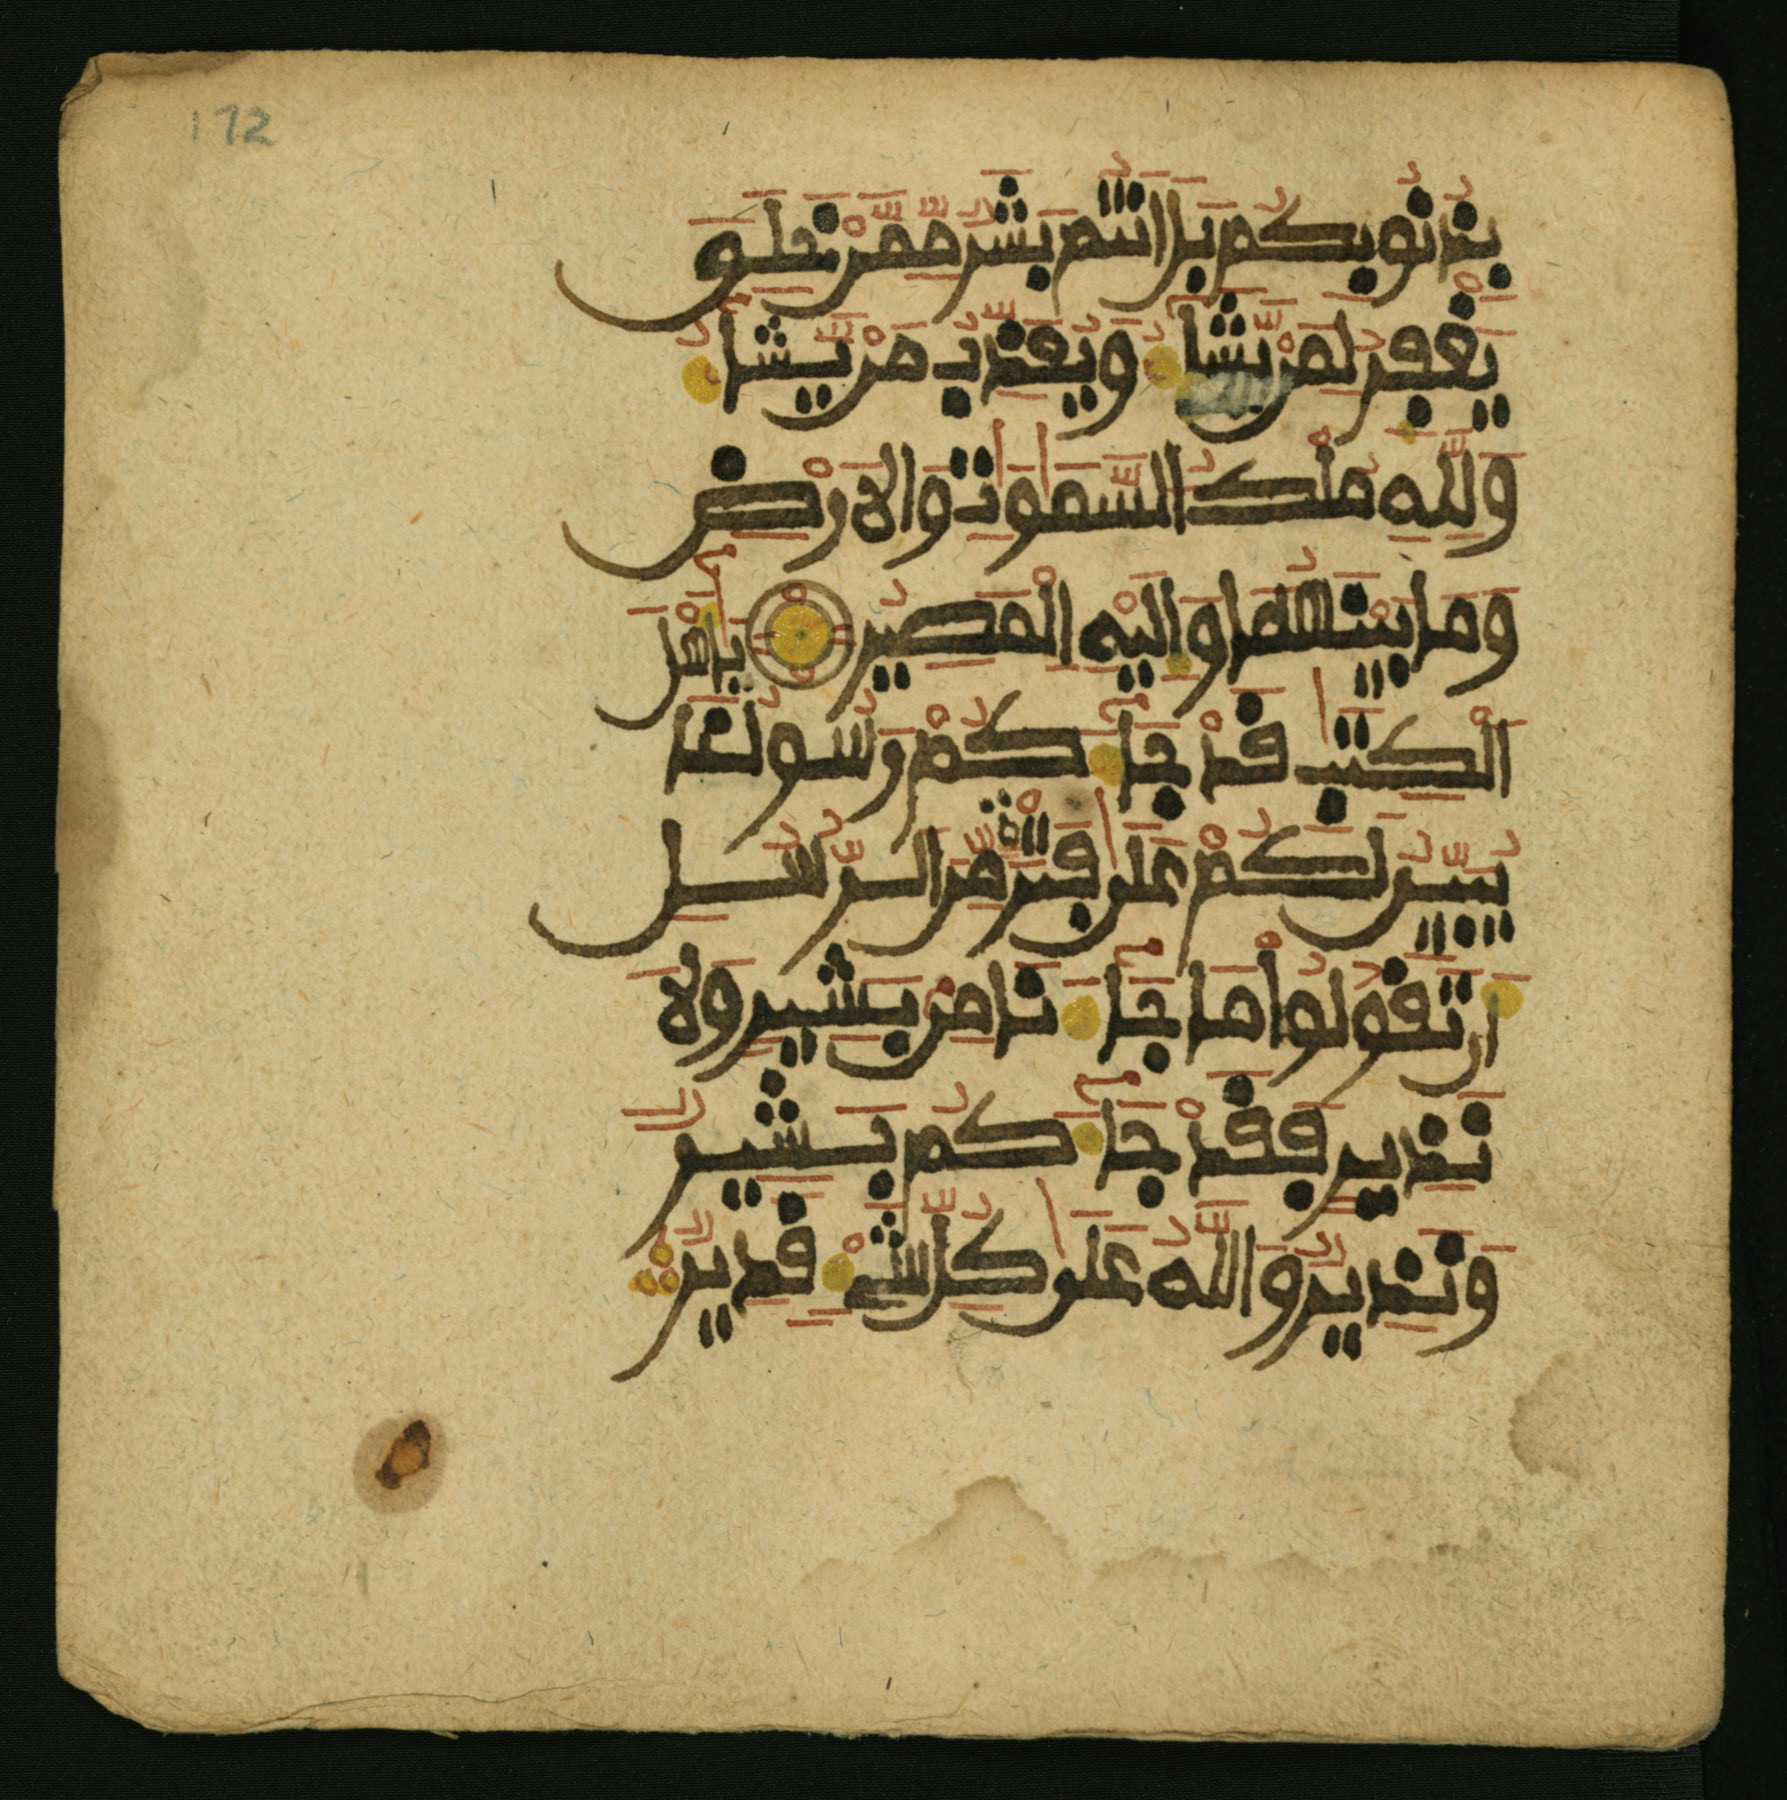 172
بِذُنُوبِكُم بَلَ اَنتُم بَشَرٌ مِّمَّنْ خَلَقَ
يَغْفِرُ لِمَنْ يَّشَآءُ وَيُعَذِّبُ مَنْ يَّشَآءُ
وَلِلَّهِ مُلْكُ السَّمَٰوَٰتِ وَالَارْضِ
وَمَا بَيْنَهُمَا وَإِلَيْهِ الْمَصِيرُ يَٰٓأَهْلَ
الْكِتَٰبِ قَدْ جَآءَكُمْ رَسُولُنَا
يُبَيِّنُ لَكُمْ عَلَىٰ فَتْرَةٍ مِّنَ الرُّسُلِ
أَن تَقُولُواْ مَا جَآءَنَا مِنۢ بَشِيرٍ وَلَا
نَذِيرٍ فَقَدْ جَآءَكُم بَشِيرٌ
وَنَذِيرٌ وَاللَّهُ عَلَىٰ كُلِّ شَيْءٍ قَدِيرٌ